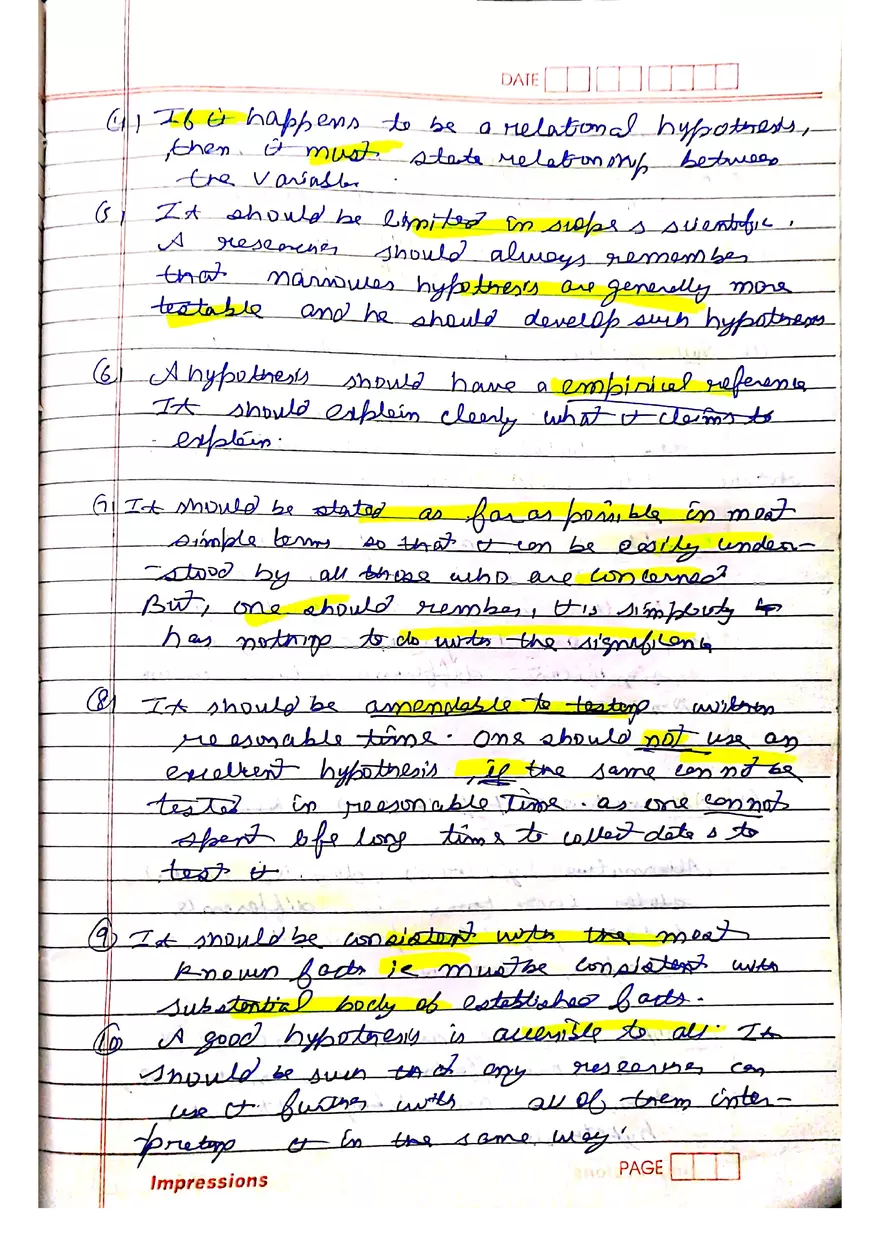 DATE
(4) If it happens to be a relational hypothesis,
then it must state relationship between
the variables.
(5) It should be limited in scope & scientific.
A researcher should always remember
that narrower hypothesis are generally more
testable and he should develop such hypothesis
(6) A hypothesis should have a empirical reference
It should explain clearly what it claims to
explain.
(7) It should be stated as far as possible in most
simple terms so that it can be easily under-
-stood by all those who are concerned
But, one should rember, its simplicity
has nothing to do with the significance
(8) It should be amendable to testing within
reasonable time. One should not use an
excellent hypothesis, if the same can not be
tested in reasonable time. as one cannot
spent life long time to collect data & to
test it.
(9) It should be consistent with the most
known facts ie must be consistent with
substential body of established facts.
(10) A good hypothesis is accessible to all. It
should be such that any researcher can
use it further with all of them inter-
preting it in the same way.
Impressions
PAGE